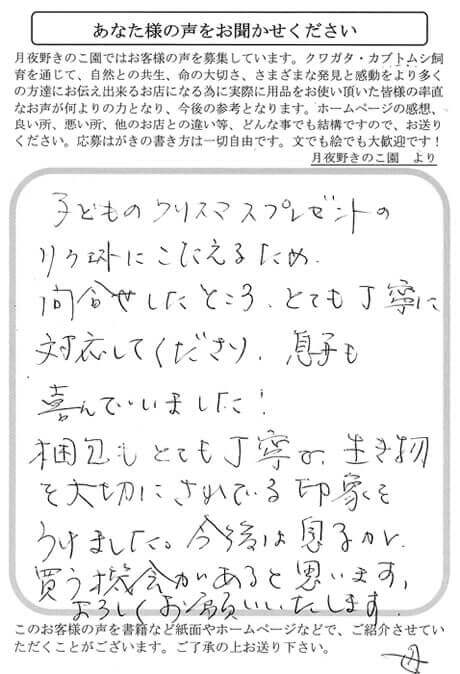 あなた様の声をお聞かせください
月夜野きのこ園ではお客様の声を募集しています。クワガタ・カブトムシ飼
育を通じて、自然との共生、命の大切さ、さまざまな発見と感動をより多く
の方達にお伝え出来るお店になる為に実際に用品をお使い頂いた皆様の率直
なお声が何よりの力となり、今後の参考となります。ホームページの感想、
良い所、悪い所、他のお店との違い等、どんな事でも結構ですので、お送り
ください。応募はがきの書き方は一切自由です。文でも絵でも大歓迎です！
月夜野きのこ園　より
子どものクリスマスプレゼントの
リクエストにこたえるため、
問合せしたところ、とても丁寧に
対応してくださり、息子も
喜んでいました！
梱包もとても丁寧で、生き物
を大切にされている印象を
うけました。今後は息子が、
買う機会があると思います、
よろしくお願いいたします。
このお客様の声を書籍など紙面やホームページなどで、ご紹介させてい
ただくことがございます。ご了承の上お送り下さい。
母